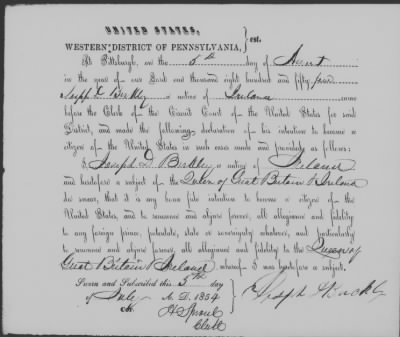 UNITED STATES,
WESTERN DISTRICT OF PENNSYLVANIA, } sst.
At Pittsburgh, on the 5th day of
in the year of our Lord one thousand eight hundred and fifty four
a native of Ireland came
before the Clerk of the Circuit Court of the United States for said
District, and made the following declaration of his intention to become a
citizen of the United States in such cases made and provided as follows:
I Joseph a native of Ireland
and heretofore a subject of the Queen of Great Britain & Ireland
do swear, that it is my bona fide intention to become a citizen of the
United States, and to renounce and abjure forever, all allegiance and fidelity
to any foreign prince, potentate, state or sovereignty whatever, and particularly
to renounce and abjure forever, all allegiance and fidelity to the Queen of
Great Britain & Ireland whereof I was heretofore a subject.
Sworn and Subscribed this 5th day
of July A. D. 1854
H Sproul
Clerk
Joseph